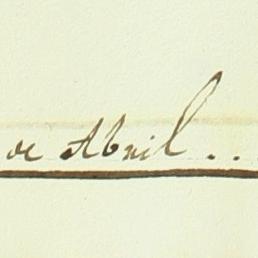 de Abril..